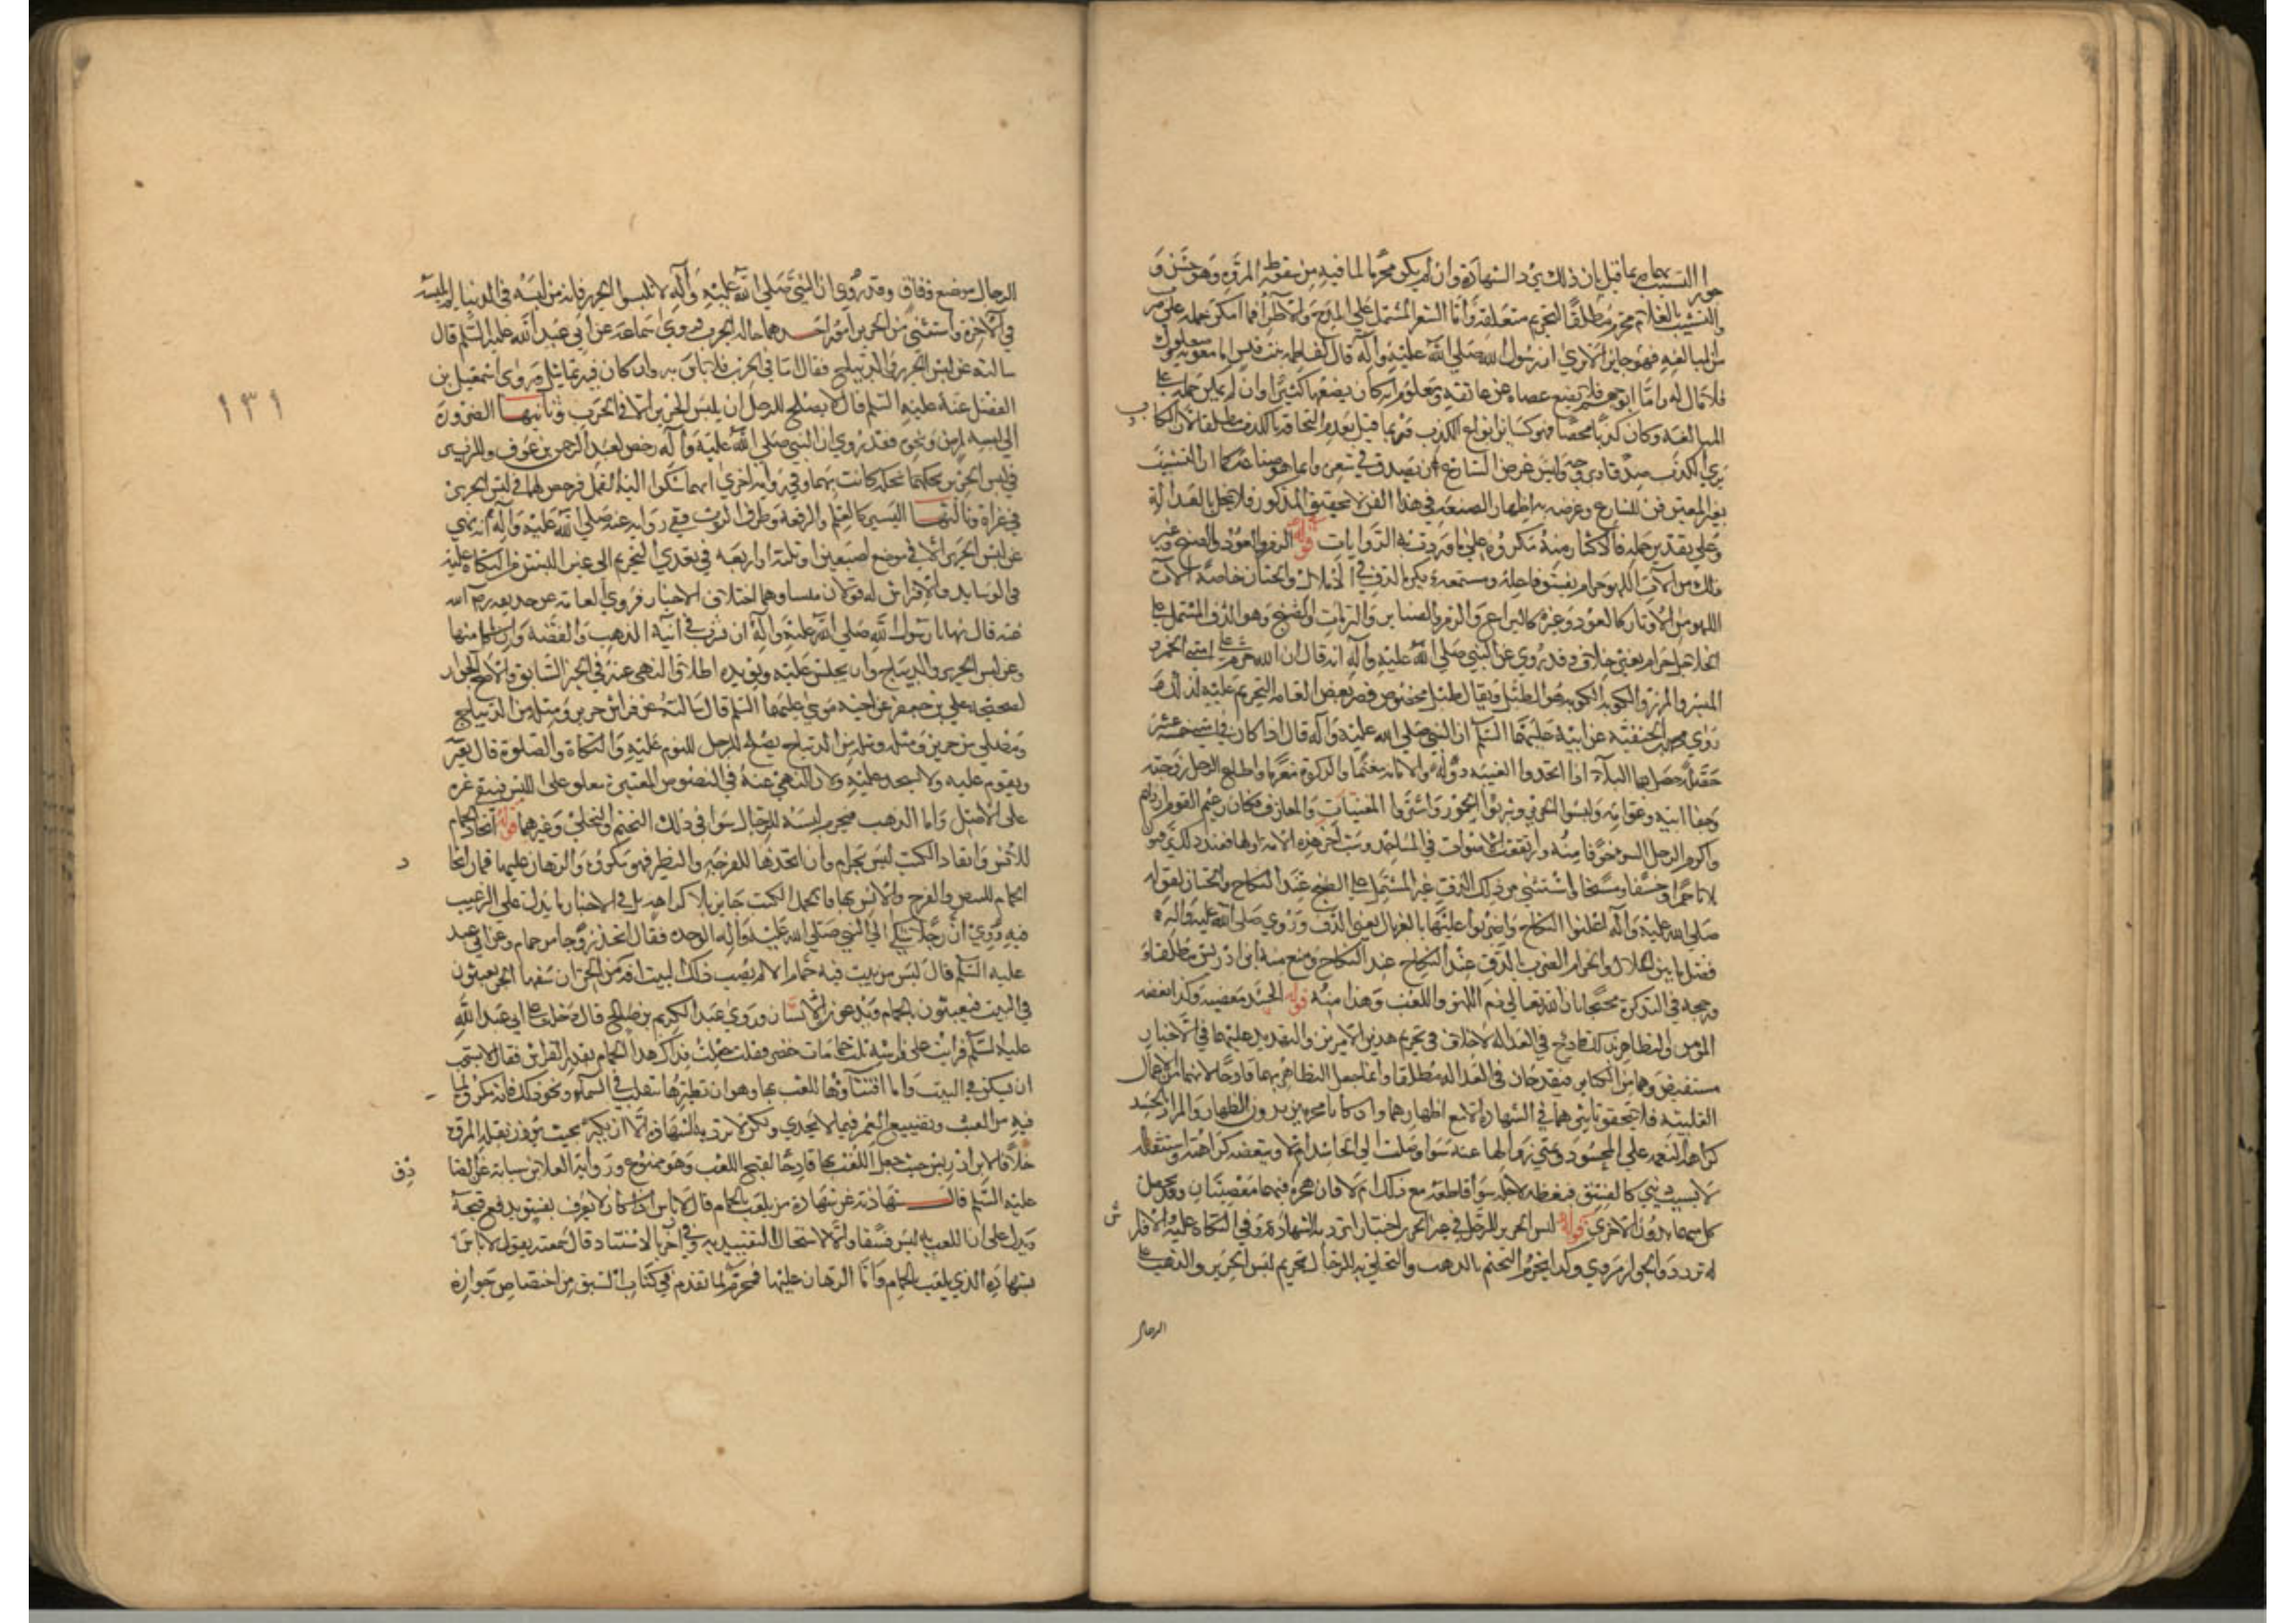 النسيب بما قيل بان ذلك يرد الشهادة وان لم يكن محرما لما فيه من سقوط المروة وهو حسن و
التشبيب بالغلام محرم مطلقا لتحريم متعلقه واما الشعر المشتمل علي المدح والاطراء فما امكن حمله علي ضرب
من المبالغة فهو جايز الا تري ان رسول الله صلي الله عليه وآله قال لفاطمه بنت قيس اما معوية فصعلوك
فلا مال له واما ابو جهم فلا يضع عصاه عن عاتقه ومعلوم انه كان يضعها كثيرا وان لم يمكن حمله علي
المبالغة وكان كذبا محضا فهو كسائر انواع الكذب وربما قيل بعدم التحاقه بالكذب مطلقا لان الكاذب
يري الكذب صدقا ويروجه وليس غرض الشاعر ان يصدق في شعره وانما هو صناعة كما ان التشبيب
بغير المعين فن للشاعر وغرضه به اظهار الصنعة في هذا الفن لا تحقيق المذكور فلا يخل بالعدالة
وعلي تقدير حله فالاكثار منه مكروه علي ما وردت به الروايات قوله الزمر والعود والصنج وغير
ذلك من آلات اللهو حرام يفسق فاعله ومستمعه ويكره الدف في الاملاك والختان خاصة آلات
اللهو من الاوتار كالعود وغيره كاليراع والزمر والطنابير والرباب والصنج وهو الدف المشتمل علي
الجلاجل حرام بغير خلاف وقد روي عن النبي صلي الله عليه وآله انه قال ان الله حرم علي امتي الخمر و
الميسر والمزر والكوبة والكوبة هو الطبل ويقال طبل مخصوص فقصر بعض العامة التحريم عليه لذلك و
روي محمد بن الحنفية عن ابيه عليهما السلم ان النبي صلي الله عليه وآله قال اذا كان في امتي خمس عشرة
خصلة حل بها البلاء اذا اتخذوا الغنيمة دولة والامانة مغنما والزكوة مغرما واطاع الرجل زوجته
وجفا ابيه وعق امه ولبسوا الحرير وشربوا الخمور واشتروا المغنيات والمعازف وكان زعيم القوم ارذلهم
واكرم الرجل السوء خوفا منه وارتفعت الاصوات في المساجد وسب آخر هذه الامة اولها فعند ذلك يرقبوا
ثلاثا ريحا حمرا وخسفا ومسخا واستثني من ذلك الدف غير المشتمل علي الصنج عند النكاح والختان لقوله
صلي الله عليه وآله اعلنوا النكاح واضربوا عليها بالغربال يعني الدف وروي صلي الله عليه وآله
فصل ما بين الحلال والحرام الضرب بالدف عند النكاح ومنع منه ابن ادريس مطلقا و
رجحه في التذكرة محتجا بان الله تعالي ذم اللهو واللعب وهذا منه قوله الحسد معصية وكذا بغضة
المؤمن والتظاهر بذلك قادح في العدالة لا خلاف في تحريم هذين الامرين والتهديد عليهما في الاخبار
مستفيض وهما من الكبائر فيقدحان في العدالة مطلقا وانما جعل التظاهر بهما قادحا لانهما من الاعمال
القلبية فلا يتحقق تاثيرهما في الشهادة الا مع اظهارهما وان كانا محرمين بدون الاظهار والمراد بالحسد
كراهة النعمة علي المحسود وتمني زوالها عنه سوا وصلت الي الحاسد ام لا وببغضه كراهته واستثقاله
لا لسبب ديني كالفسق فيبغضه لاجله سوا قاطعه مع ذلك ام لا فان هجره فهما معصيتان وقد تحصل
كل منهما بدون الاخري قوله لبس الحرير للرجال في غير الحرب اختيارا ترد به الشهادة وفي التكاة عليه والافتراش
له تردد والجواز مروي وكذا يحرم التختم بالذهب والتحلي به للرجال تحريم لبس الحرير والذهب علي
الرجال
الرجال موضع وفاق وقد روي ان النبي صلي الله عليه وآله لا تلبسوا الحرير فانه من لبسه في الدنيا لم يلبسه
في الآخرة واستثني من الحرير امور احدها حالة الحرب فروي سماعة عن ابي عبد الله عليه السلم قال
سالته عن لبس الحرير والديباج فقال اما في الحرب فلا باس به وان كان فيه تماثيل وروي اسمعيل بن
الفضل عنه عليه السلم قال لا يصلح للرجل ان يلبس الحرير الا في الحرب وثانيها الضرورة
الي لبسه لبرد ونحوه فقد روي ان النبي صلي الله عليه وآله رخص لعبد الرحمن بن عوف وللزبير
في لبس الحرير لحكة كانت بهما وفي رواية اخري انهما شكوا اليه القمل فرخص لهما في لبس الحرير
في غزاة وثالثها اليسير كالعلم والرقعة وطرف الثوب ففي رواية عنه صلي الله عليه وآله انه نهي
عن لبس الحرير الا في موضع اصبعين او ثلثة او اربعة وفي تعدي التحريم الي غير اللبس من التكاة عليه
في الوسايد والافتراش له قولان منشاوهما اختلاف الاخبار فروي العامة عن حذيفة رضي الله
عنه قال نهانا رسول الله صلي الله عليه وآله ان نشرب في آنية الذهب والفضة وان ناكل منها
وعن لبس الحرير والديباج وان نجلس عليه ويؤيده اطلاق النهي عنه في الخبر السابق والاصح الجواز
لصحيحة علي بن جعفر عن اخيه موسي عليهما السلم قال سالته عن فراش حرير ومثله من الديباج
ومصلي حرير ومثله من الديباج يصلح للرجل النوم عليه والتكاة والصلوة قال يفترشه
ويقوم عليه ولا يسجد عليه ولان النهي عنه في النصوص المعتبرة متعلق علي اللبس فيبقي غيره
علي الاصل واما الذهب فيحرم لبسه للرجال سوا في ذلك التختم والتحلي وغيرهما قوله اتخاذ الحمام
للانس وانفاذ الكتب ليس بحرام وان اتخذها للفرجة والنظر فهو مكروه والرهان عليها قمار اتخاذ
الحمام للبيض والفرخ والانس بها وانحمل الكتب جايز بلا كراهة بل في الاخبار ما يدل علي الترغيب
فيه وروي ان رجلا شكي الي النبي صلي الله عليه وآله الوحدة فقال اتخذ زوجا من حمام وعن ابي عبد
عليه السلم قال ليس من بيت فيه حمام الا لم يصب ذلك البيت آفة من الجن ان سفهاء الجن يعبثون
في البيت فيعبثون بالحمام ويدعون الانسان وروي عبد الكريم بن صالح قال دخلت علي ابي عبد الله
عليه السلم فرايت علي فراشه ثلث حمامات خضر فقلت جعلت فداك هذا الحمام يقذر الفراش فقال لا يستحب
ان يسكن في البيت واما اقتناؤها للعب بها وهو ان تطيرها تنقلب في السماء ونحو ذلك فانه مكروه لما
فيه من العبث وتضييع العمر فيما لا يجدي ولكن لا ترد به الشهادة الا ان يكثر بحيث يؤذن بقلة المروة
خلافا لابن ادريس حيث جعل اللعب بها قادحا لقبح اللعب وهو ممنوع ورواية العلا بن سيابة عن الصا
عليه السلم قال سالته عن شهادة من يلعب بالحمام قال لا باس اذا كان لا يعرف بفسق يدفع قبحه
ويدل علي ان اللعب به ليس فسقا والا لاستحال التقييد به وفي آخر بالاسناد قال سمعته يقول لا باس
بشهادة الذي يلعب بالحمام واما الرهان عليها فمحرم لما تقدم في كتاب السبق من اختصاص جوازه
١٣١